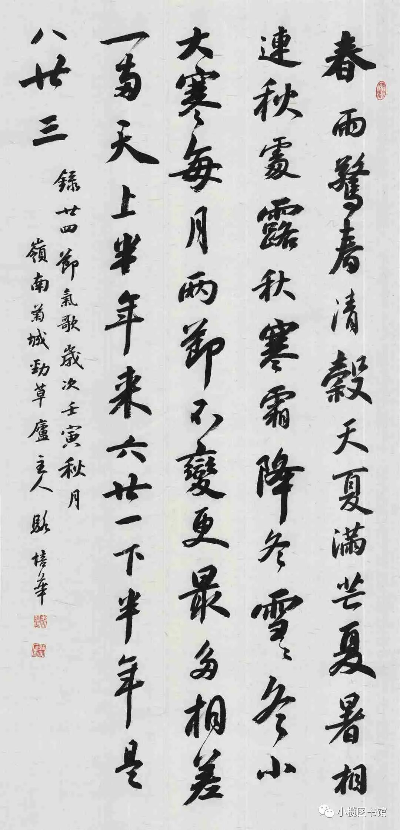 春雨驚春清穀天夏滿芒夏暑相
連秋處露秋寒霜降冬雪〻冬小
大寒每月兩節不變更最多相差
一兩天上半年来六廿一下半年是
八廿三
錄廿四節氣歌歲次壬寅秋月
嶺南菊城勁草廬主人培華
小榄图书馆